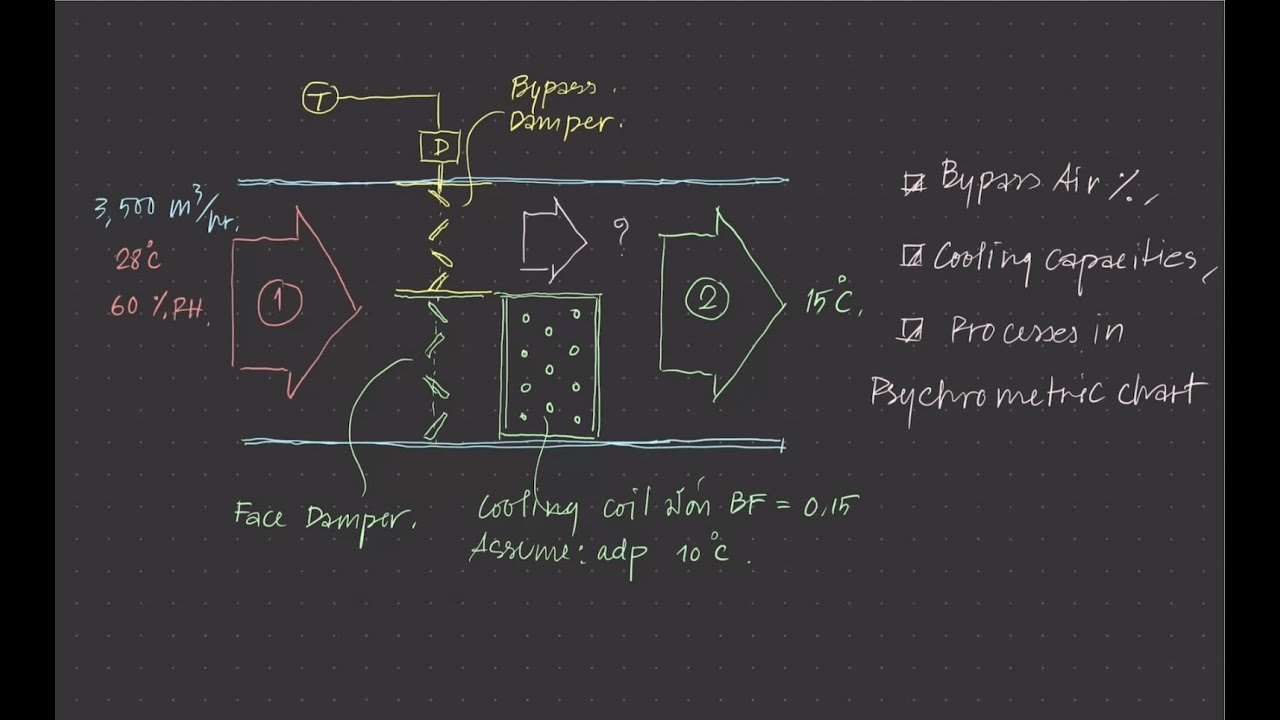 T
D
Bypass.
Damper.
3,500 m³/hr.
28°C
60 % RH.
1
?
2
15°C.
Face Damper.
Cooling coil มีค่า BF = 0,15
Assume: adp 10°C.
Bypass Air %,
Cooling capacities,
Processes in
Psychrometric chart